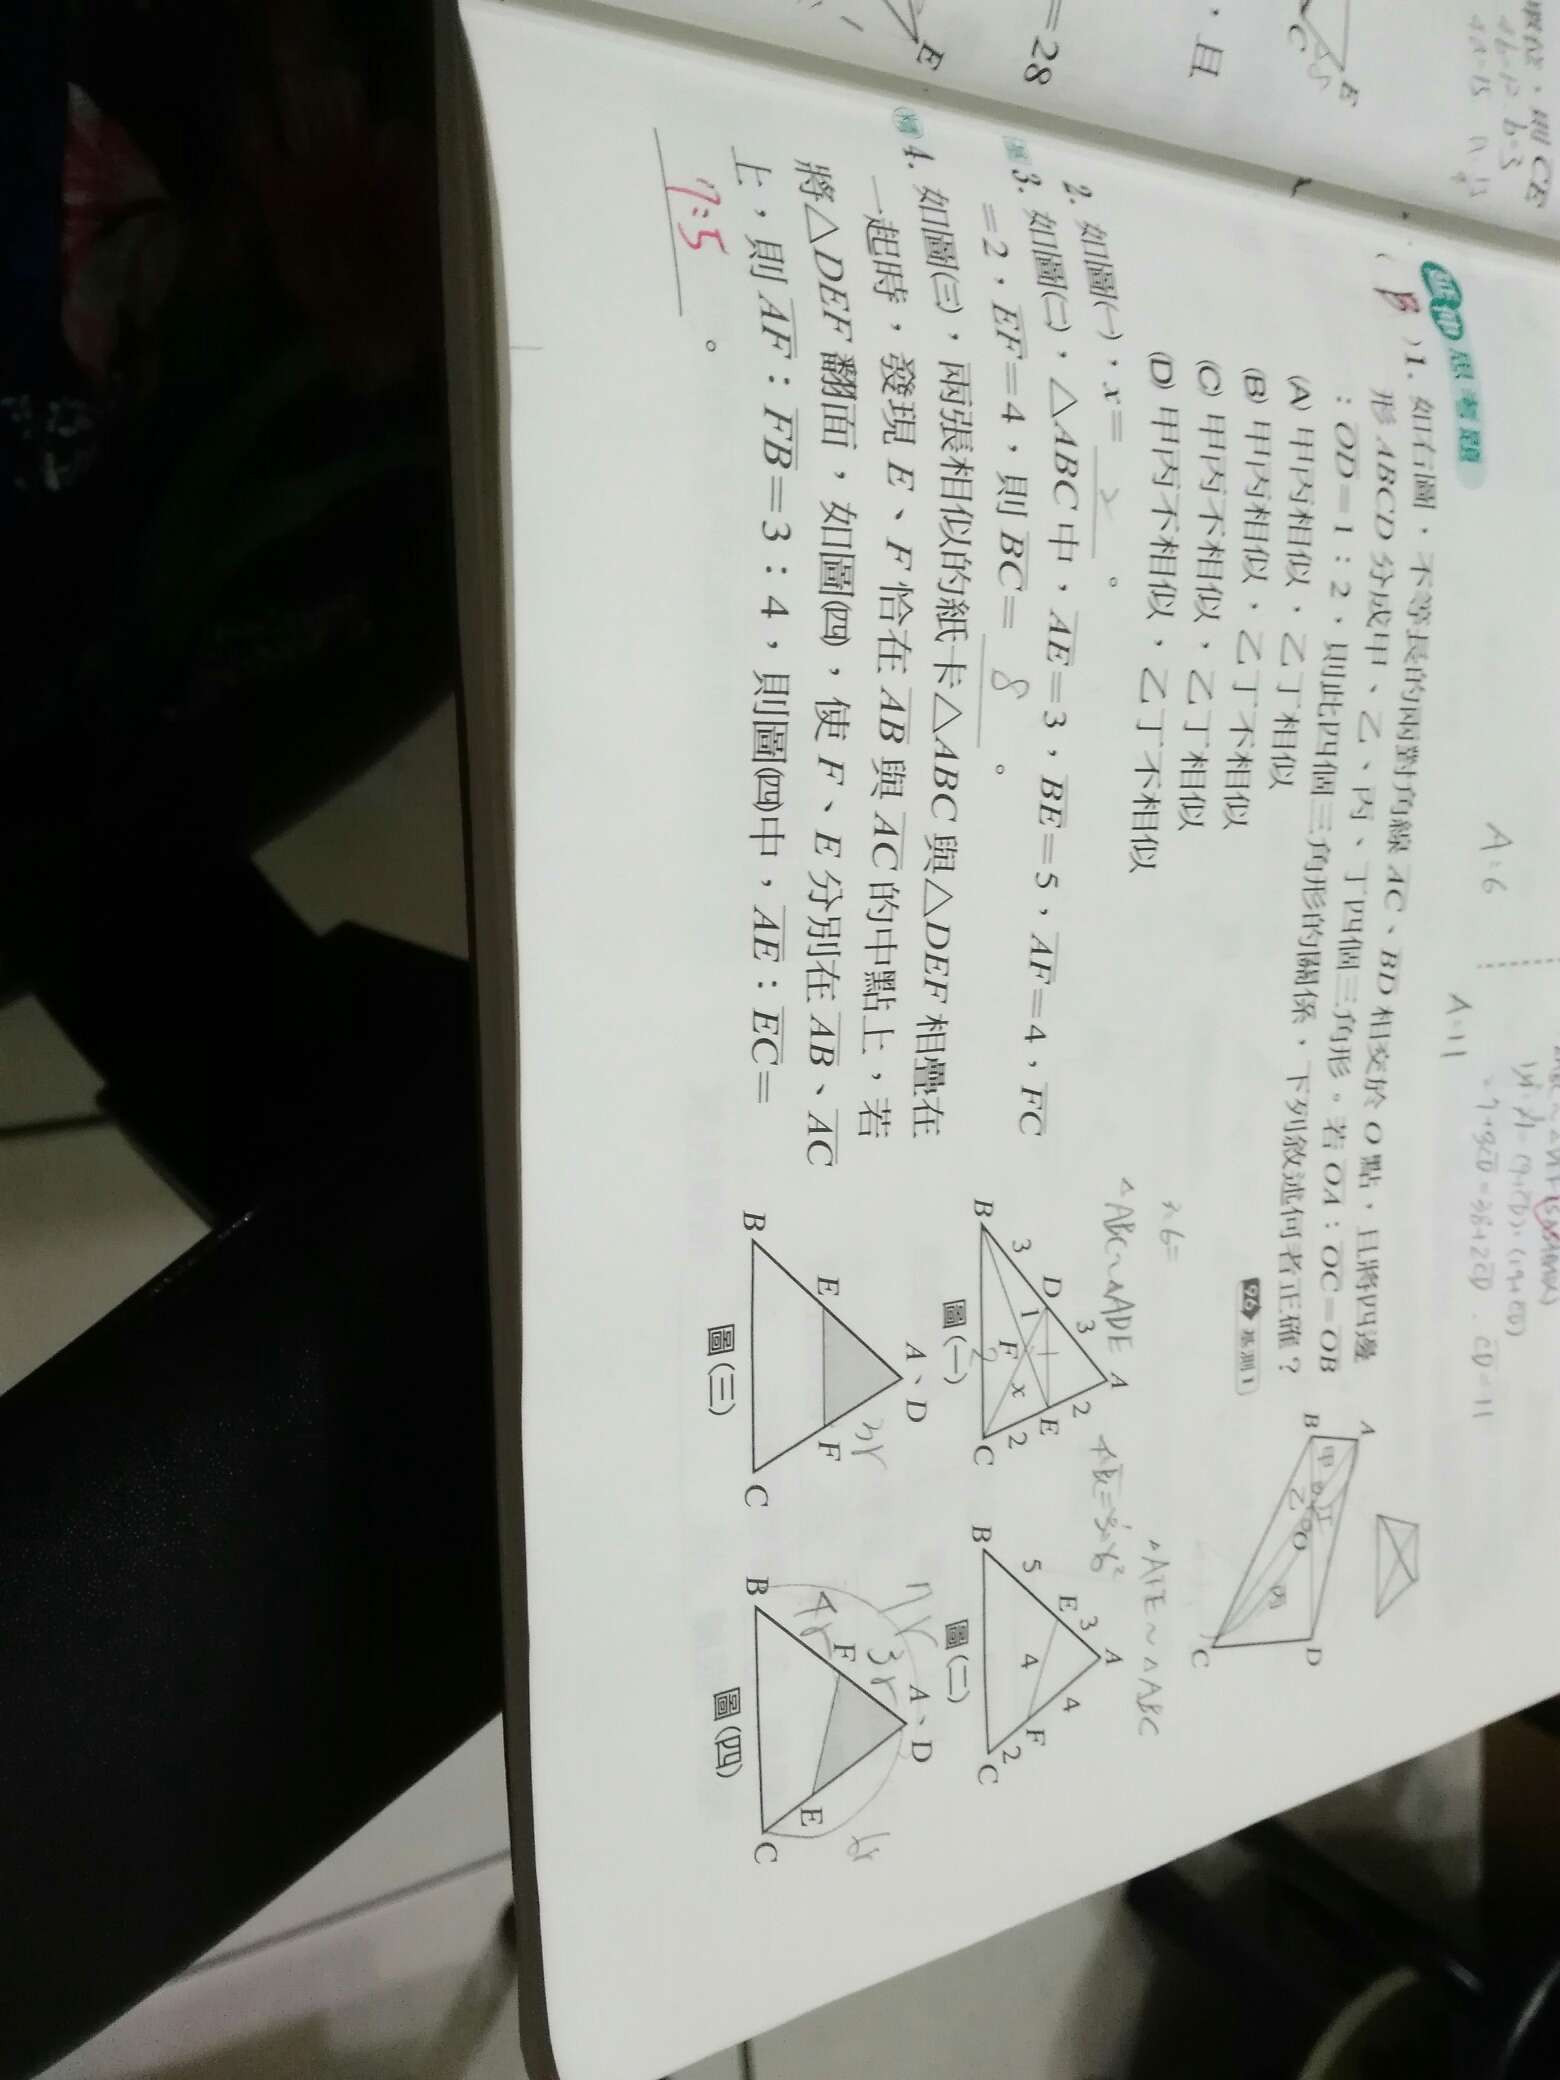 = 28
，且
E
C
思考題
A=6
A=11
( B ) 1. 如右圖，不等長的兩對角線 AC、BD 相交於 O 點，且將四邊
形 ABCD 分成甲、乙、丙、丁四個三角形。若 OA：OC＝OB
：OD＝1：2，則此四個三角形的關係，下列敘述何者正確？
96 基測 1
(A) 甲丙相似，乙丁相似
(B) 甲丙相似，乙丁不相似
(C) 甲丙不相似，乙丁相似
(D) 甲丙不相似，乙丁不相似
A
B
甲
乙
O
丙
D
C
2. 如圖(一)，x＝ 2 。
3. 如圖(二)，△ABC 中，AE＝3，BE＝5，AF＝4，FC
＝2，EF＝4，則 BC＝ 8 。
4. 如圖(三)，兩張相似的紙卡△ABC 與△DEF 相疊在
一起時，發現 E、F 恰在 AB 與 AC 的中點上，若
將△DEF 翻面，如圖(四)，使 F、E 分別在 AB、AC
上，則 AF：FB＝3：4，則圖(四)中，AE：EC＝
7:5 。
△ABC~△ADE
△AFE~△ABC
A
3
2
D
E
3
1
F
x
2
B
2
C
圖(一)
A
3
4
E
F
5
4
2
B
C
圖(二)
A、D
3r
E
F
B
C
圖(三)
7r
A、D
3r
6r
F
4r
E
B
C
圖(四)